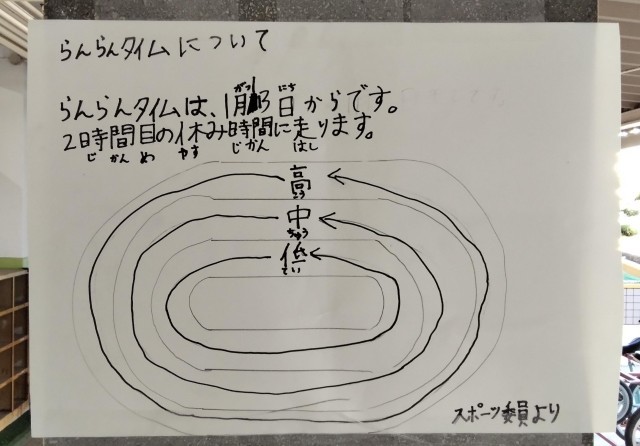 らんらんタイムについて
がつ にち
らんらんタイムは、1月13日からです。
2時間目の休み時間に走ります。
じ かん め やす じ かん はし
高
こう
中
ちゅう
低
てい
スポーツ委員より